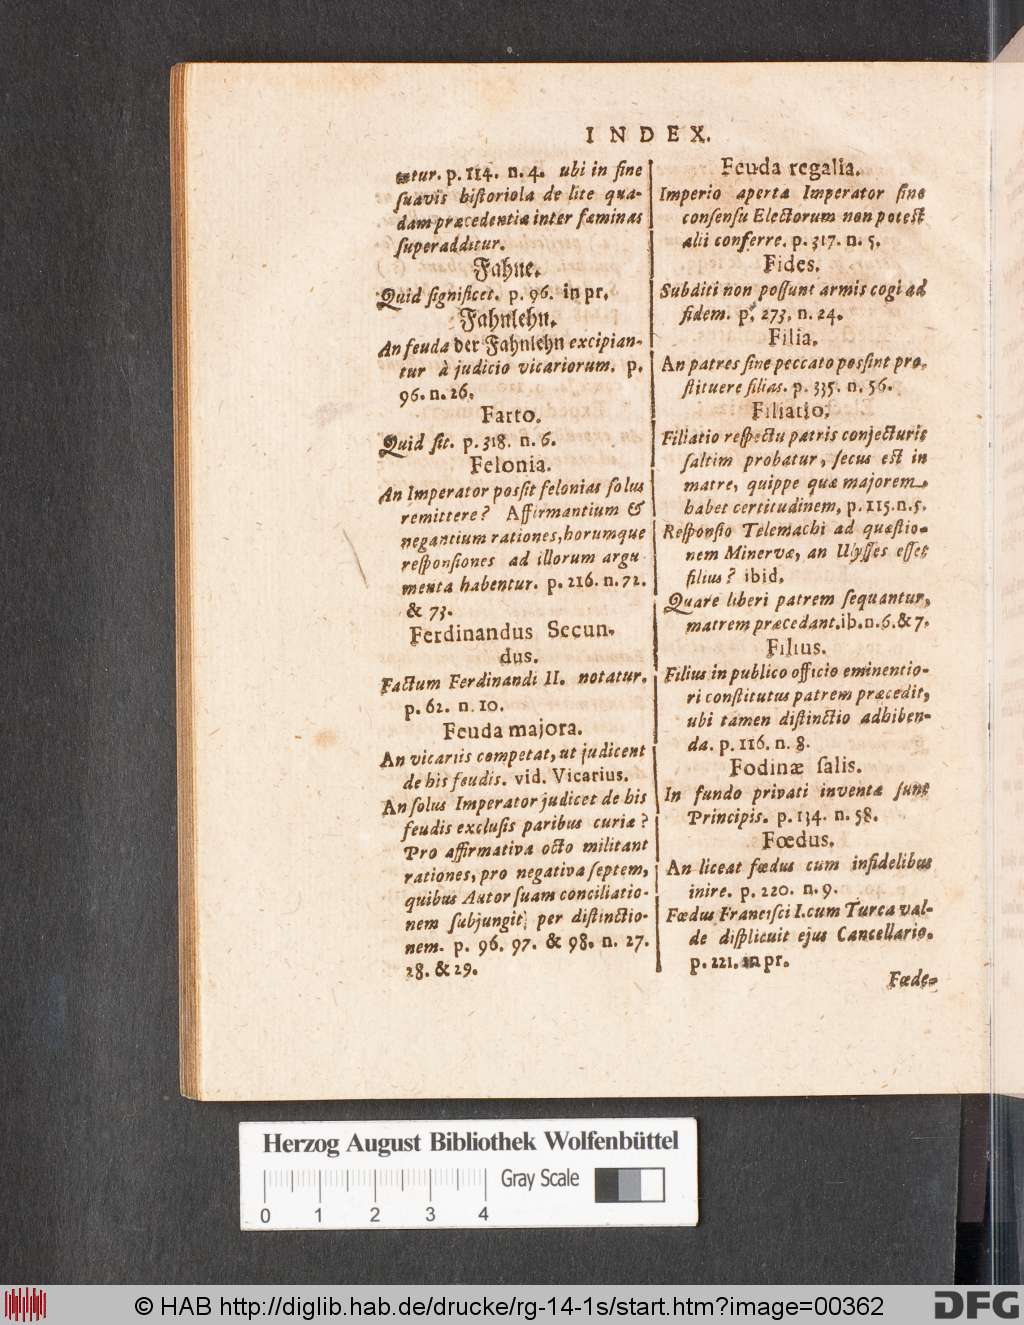 INDEX.
tur. p. 114. n. 4. ubi in fine
ſuavis hiſtoriola de lite qua-
dam præcedentiæ inter fæminas
ſuperadditur.
Fahne.
Quid ſignificet. p. 96. in pr.
Fahnlehn.
An feuda der Fahnlehn excipian-
tur à judicio vicariorum. p.
96. n. 26.
Farto.
Quid ſit. p. 318. n. 6.
Felonia.
An Imperator poſsit felonias ſolus
remittere? Affirmantium &
negantium rationes, horumque
reſponſiones ad illorum argu
menta habentur. p. 216. n. 72.
& 73.
Ferdinandus Secun.
dus.
Factum Ferdinandi II. notatur.
p. 62. n. 10.
Feuda majora.
An vicariis competat, ut judicent
de his feudis. vid. Vicarius.
An ſolus Imperator judicet de his
feudis excluſis paribus curiæ?
Pro affirmativa octo militant
rationes, pro negativa ſeptem,
quibus Autor ſuam conciliatio-
nem ſubjungit, per diſtinctio-
nem. p. 96. 97. & 98. n. 27.
28. & 29.
Feuda regalia.
Imperio aperta Imperator ſine
conſenſu Electorum non poteſt
alii conferre. p. 317. n. 5.
Fides.
Subditi non poſſunt armis cogi ad
fidem. p. 273. n. 24.
Filia.
An patres ſine peccato poſsint pro-
ſtituere filias. p. 335. n. 56.
Filiatio.
Filiatio reſpectu patris conjecturis
ſaltim probatur, ſecus eſt in
matre, quippe quæ majorem
habet certitudinem, p. 115. n. 5.
Reſponſio Telemachi ad quæſtio-
nem Minervæ, an Ulyſſes eſſet
filius? ibid.
Quare liberi patrem ſequantur,
matrem præcedant. ib. n. 6. & 7.
Filius.
Filius in publico officio eminentio-
ri conſtitutus patrem præcedit,
ubi tamen diſtinctio adhiben-
da. p. 116. n. 8.
Fodinæ ſalis.
In fundo privati inventæ ſunt
Principis. p. 134. n. 58.
Fœdus.
An liceat fœdus cum infidelibus
inire. p. 220. n. 9.
Fœdus Franciſci I. cum Turca val-
de diſplicuit ejus Cancellario.
p. 221. in pr.
Fœde-
Herzog August Bibliothek Wolfenbüttel
Gray Scale
0 1 2 3 4
© HAB http://diglib.hab.de/drucke/rg-14-1s/start.htm?image=00362
DFG